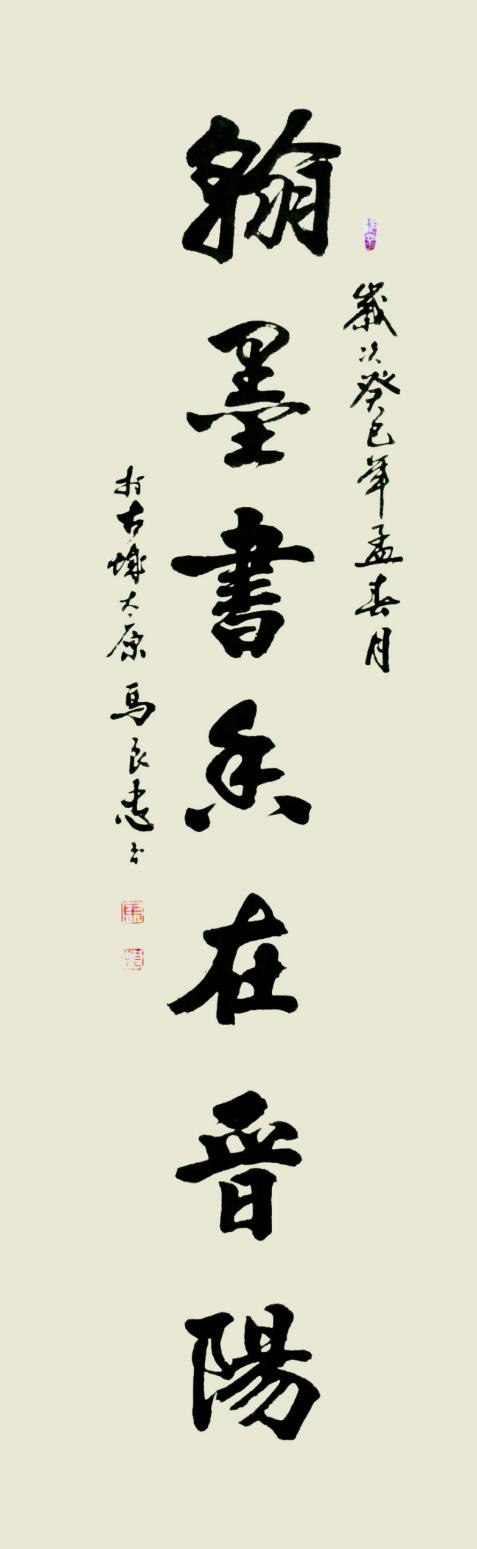 歲次癸巳年孟春月
翰墨書香在晋陽
於古城太原 馬良忠書